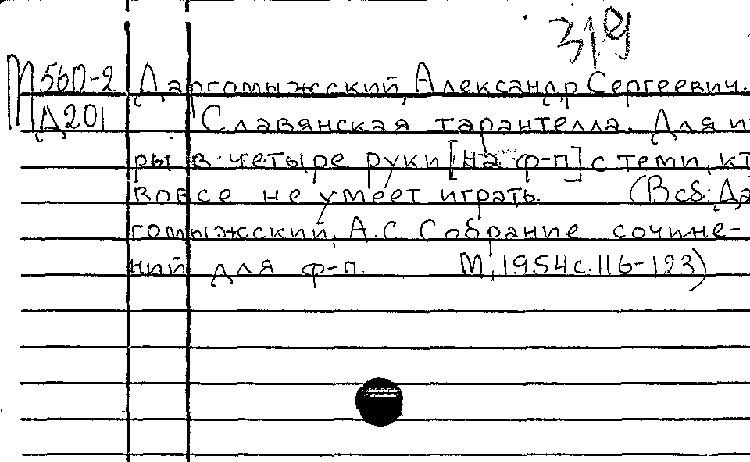 319
М560-2 Даргомыжский, Александр Сергеевич.
Д201 Славянская тарантелла. Для и
ры в четыре руки [на ф-п] с теми, кт
вовсе не умеет играть. (В сб: Да
гомыжский, А.С. Собрание сочине-
ний для ф-п. М, 1954 с. 116-123)